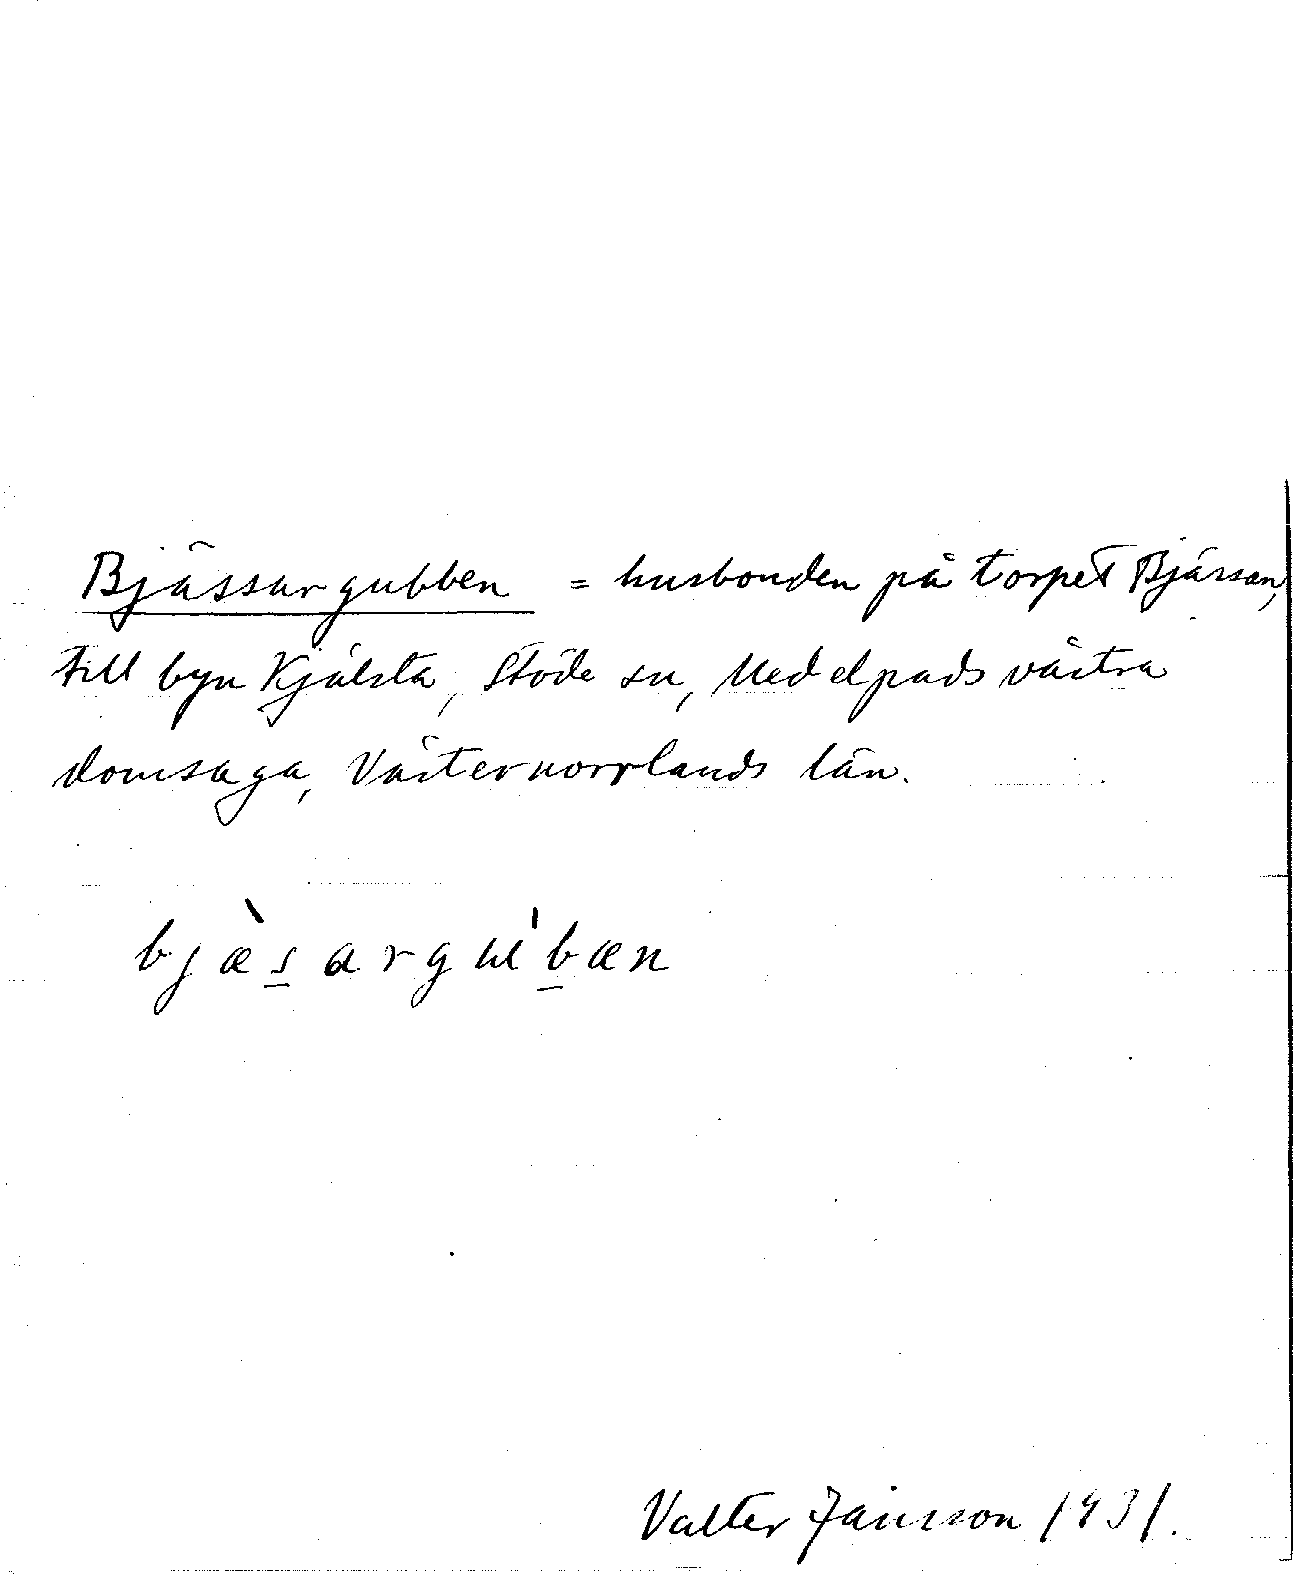 Bjässargubben = husbonden på torpet Bjässan,
till byn Kjälsta, Stöde sn, Medelpads västra
domsaga, Västernorrlands län.
bjæ̀s̲argu̍b̲æn
Valter Jansson 1931.